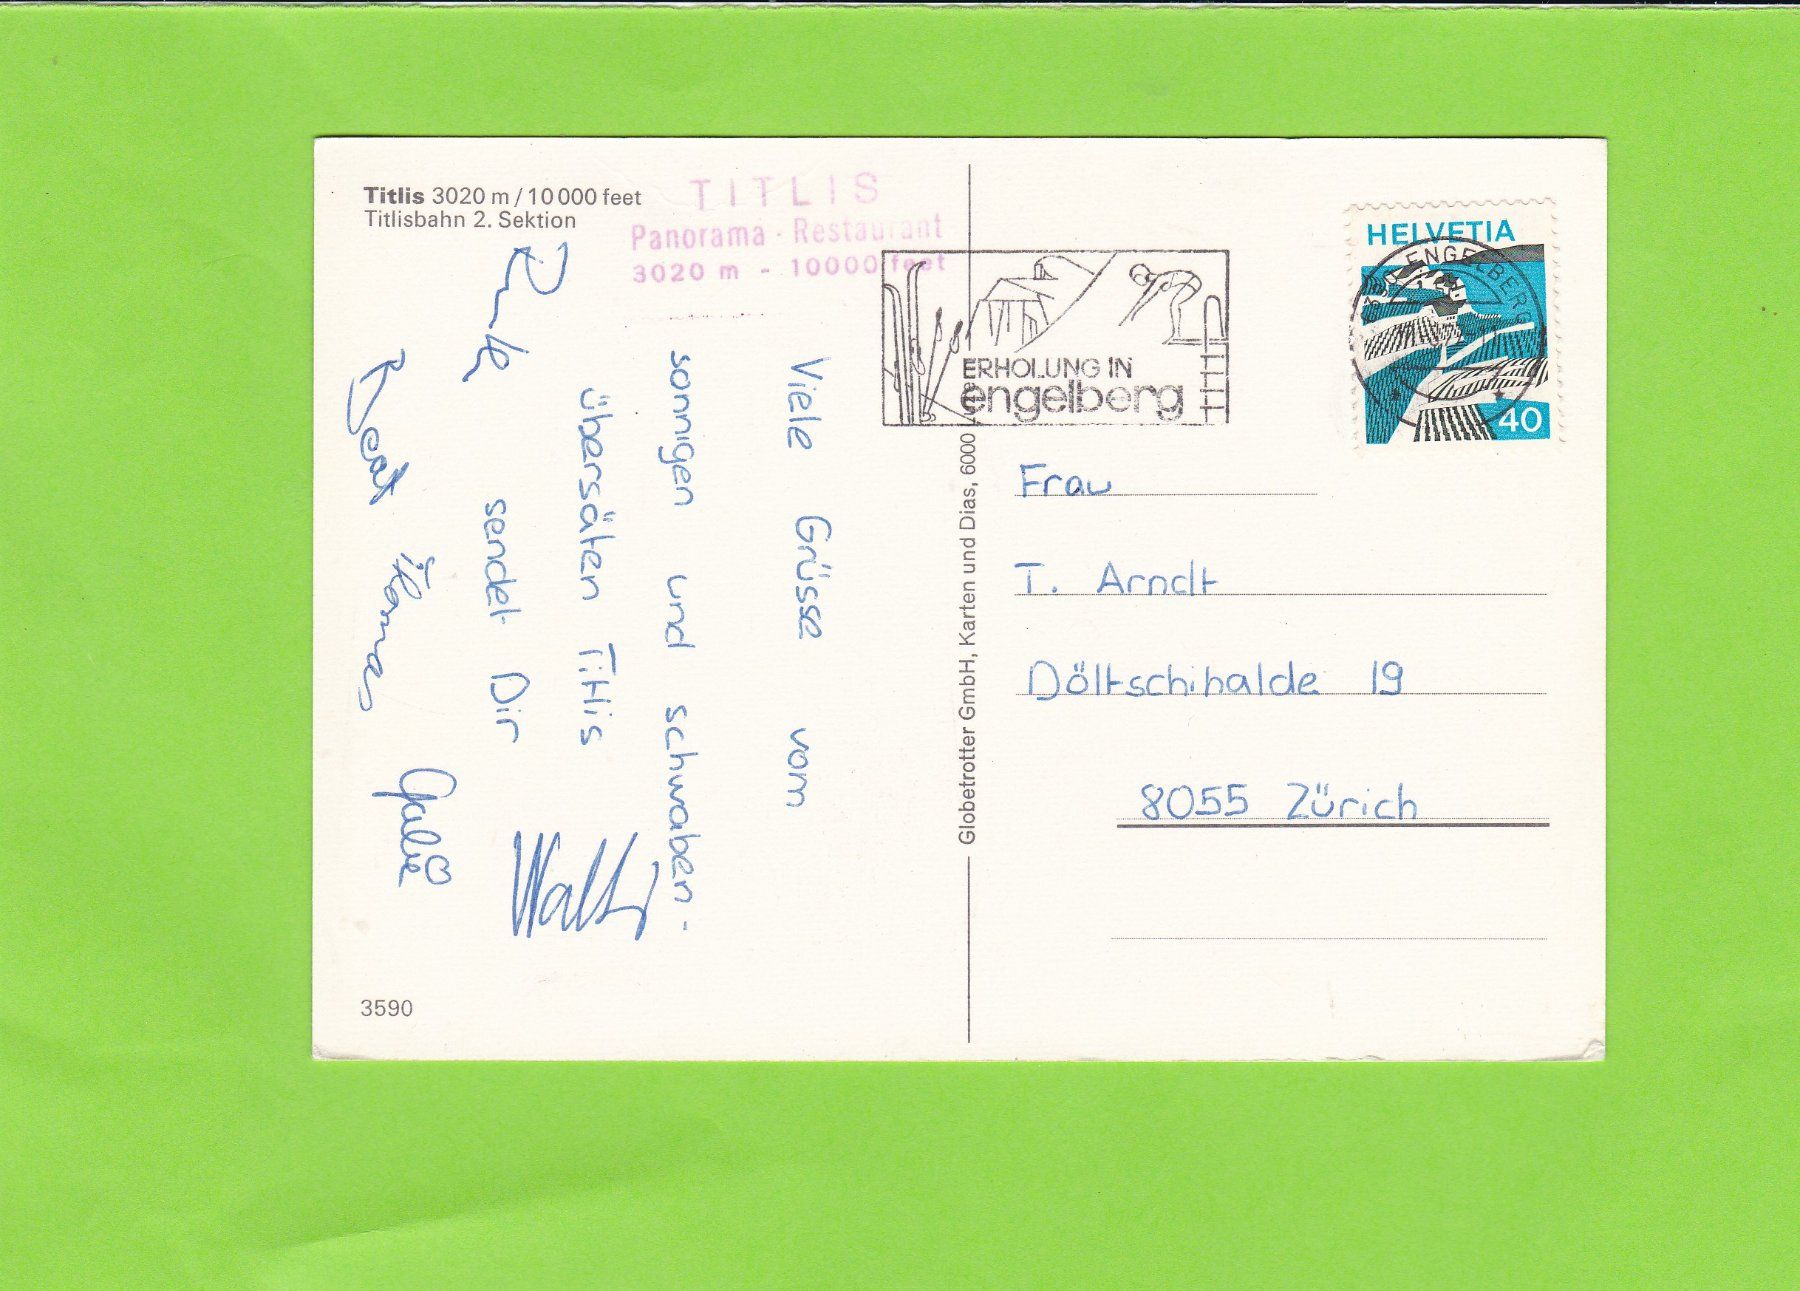 Titlis 3020 m / 10 000 feet
Titlisbahn 2. Sektion
TITLIS
Panorama - Restaurant
3020 m - 10000 feet
ERHOLUNG IN
engelberg
HELVETIA
ENGELBERG
40
Viele Grüsse vom
sonnigen und schwaben-
übersäten Titlis
sendet Dir
Walti
Beat Thomas
Globetrotter GmbH, Karten und Dias, 6000
Frau
T. Arndt
Döltschihalde 19
8055 Zürich
3590